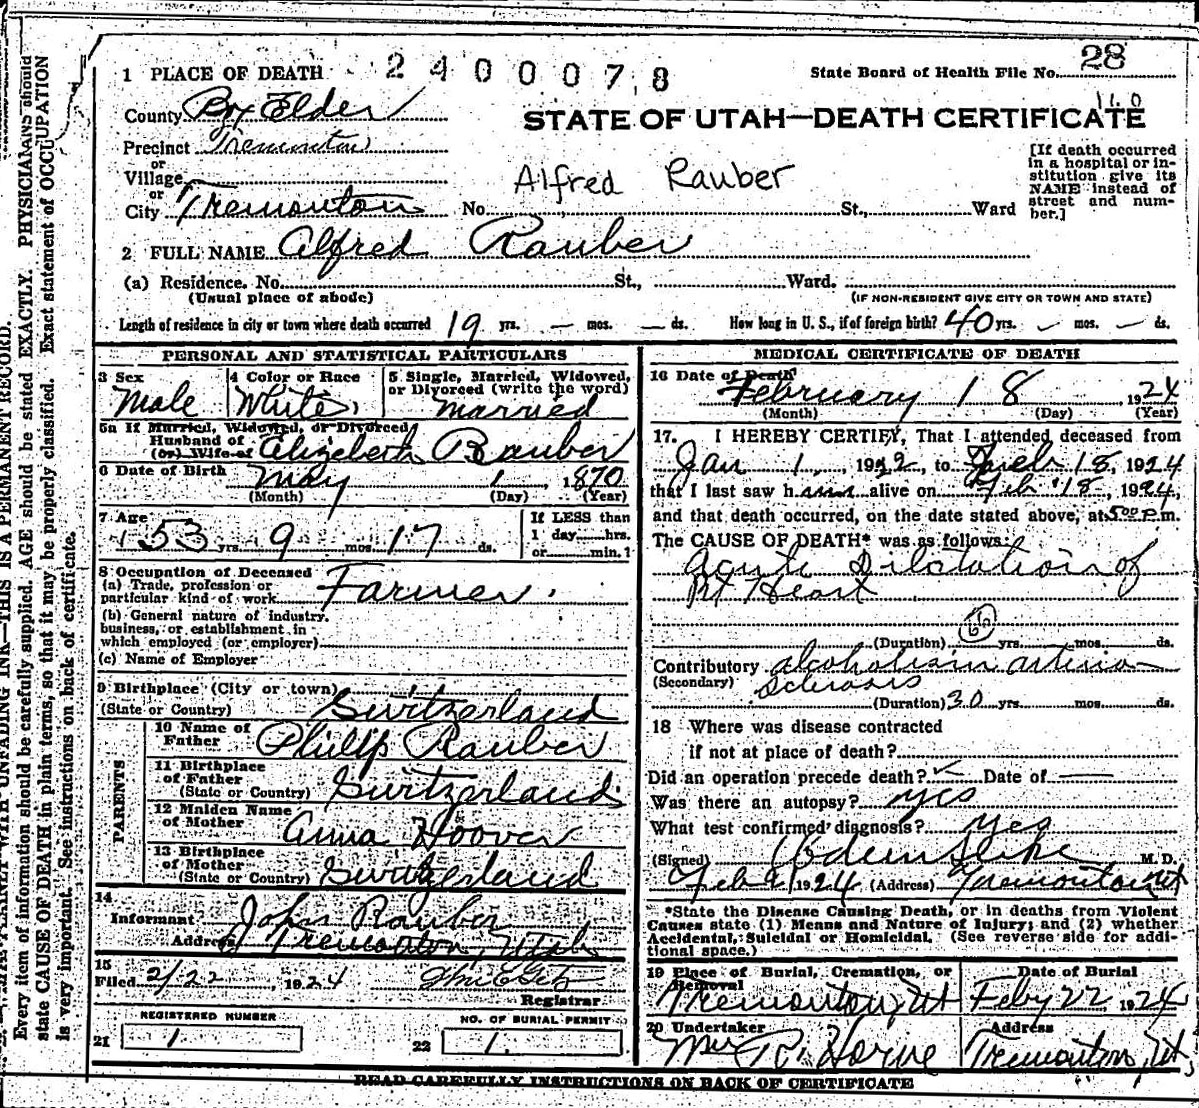 28
1 PLACE OF DEATH 2400078 State Board of Health File No.
County Box Elder
11.0
STATE OF UTAH—DEATH CERTIFICATE
Precinct Tremonton
or
Village
or
City Tremonton No. St., Ward
[If death occurred
in a hospital or in-
stitution give its
NAME instead of
street and num-
ber.]
Alfred Rauber
2 FULL NAME Alfred Rauber
(a) Residence. No. St., Ward.
(Usual place of abode) (IF NON-RESIDENT GIVE CITY OR TOWN AND STATE)
Length of residence in city or town where death occurred 19 yrs. — mos. — ds. How long in U. S., if of foreign birth? 40 yrs. — mos. — ds.
PERSONAL AND STATISTICAL PARTICULARS
3 Sex
Male
4 Color or Race
White
5 Single, Married, Widowed,
or Divorced (write the word)
married
5a If Married, Widowed, or Divorced
Husband of
(or) Wife of Elizebeth Rauber
6 Date of Birth May 1, 1870
(Month) (Day) (Year)
7 Age 53 yrs. 9 mos. 17 ds.
If LESS than
1 day hrs.
or min.?
8 Occupation of Deceased
(a) Trade, profession or
particular kind of work Farmer
(b) General nature of industry,
business, or establishment in
which employed (or employer)
(c) Name of Employer
9 Birthplace (City or town)
(State or Country) Switzerland
PARENTS
10 Name of
Father Philip Rauber
11 Birthplace
of Father
(State or Country) Switzerland
12 Maiden Name
of Mother Anna Hoover
13 Birthplace
of Mother
(State or Country) Switzerland
14
Informant John Rauber
Address Tremonton, Utah
15
Filed 2/22 1924
Registrar
REGISTERED NUMBER
21 1
NO. OF BURIAL PERMIT
22 1
MEDICAL CERTIFICATE OF DEATH
16 Date of Death
February 18, 1924
(Month) (Day) (Year)
17. I HEREBY CERTIFY, That I attended deceased from
Jan 1, 1922, to Feb 18, 1924
that I last saw him alive on Feb 18, 1924,
and that death occurred, on the date stated above, at 5:00 P.m.
The CAUSE OF DEATH* was as follows:
Acute Dilatation of
Rt Heart
(Duration) yrs. mos. ds.
Contributory alcoholism arterio
(Secondary) Sclerosis
(Duration) 30 yrs. mos. ds.
18 Where was disease contracted
if not at place of death?
Did an operation precede death? Date of —
Was there an autopsy? yes
What test confirmed diagnosis? yes
(Signed) M. D.
Feb 21 1924 (Address) Tremonton Ut
*State the Disease Causing Death, or in deaths from Violent
Causes state (1) Means and Nature of Injury; and (2) whether
Accidental, Suicidal or Homicidal. (See reverse side for addi-
tional space.)
19 Place of Burial, Cremation, or
Removal
Tremonton, Ut
Date of Burial
Feby 22 1924
20 Undertaker
Horne
Address
Tremonton, Ut,
READ CAREFULLY INSTRUCTIONS ON BACK OF CERTIFICATE
UNFADING INK—THIS IS A PERMANENT RECORD.
Every item of information should be carefully supplied. AGE should be stated EXACTLY. PHYSICIANS should
state CAUSE OF DEATH in plain terms, so that it may be properly classified. Exact statement of OCCUPATION
is very important. See instructions on back of certificate.